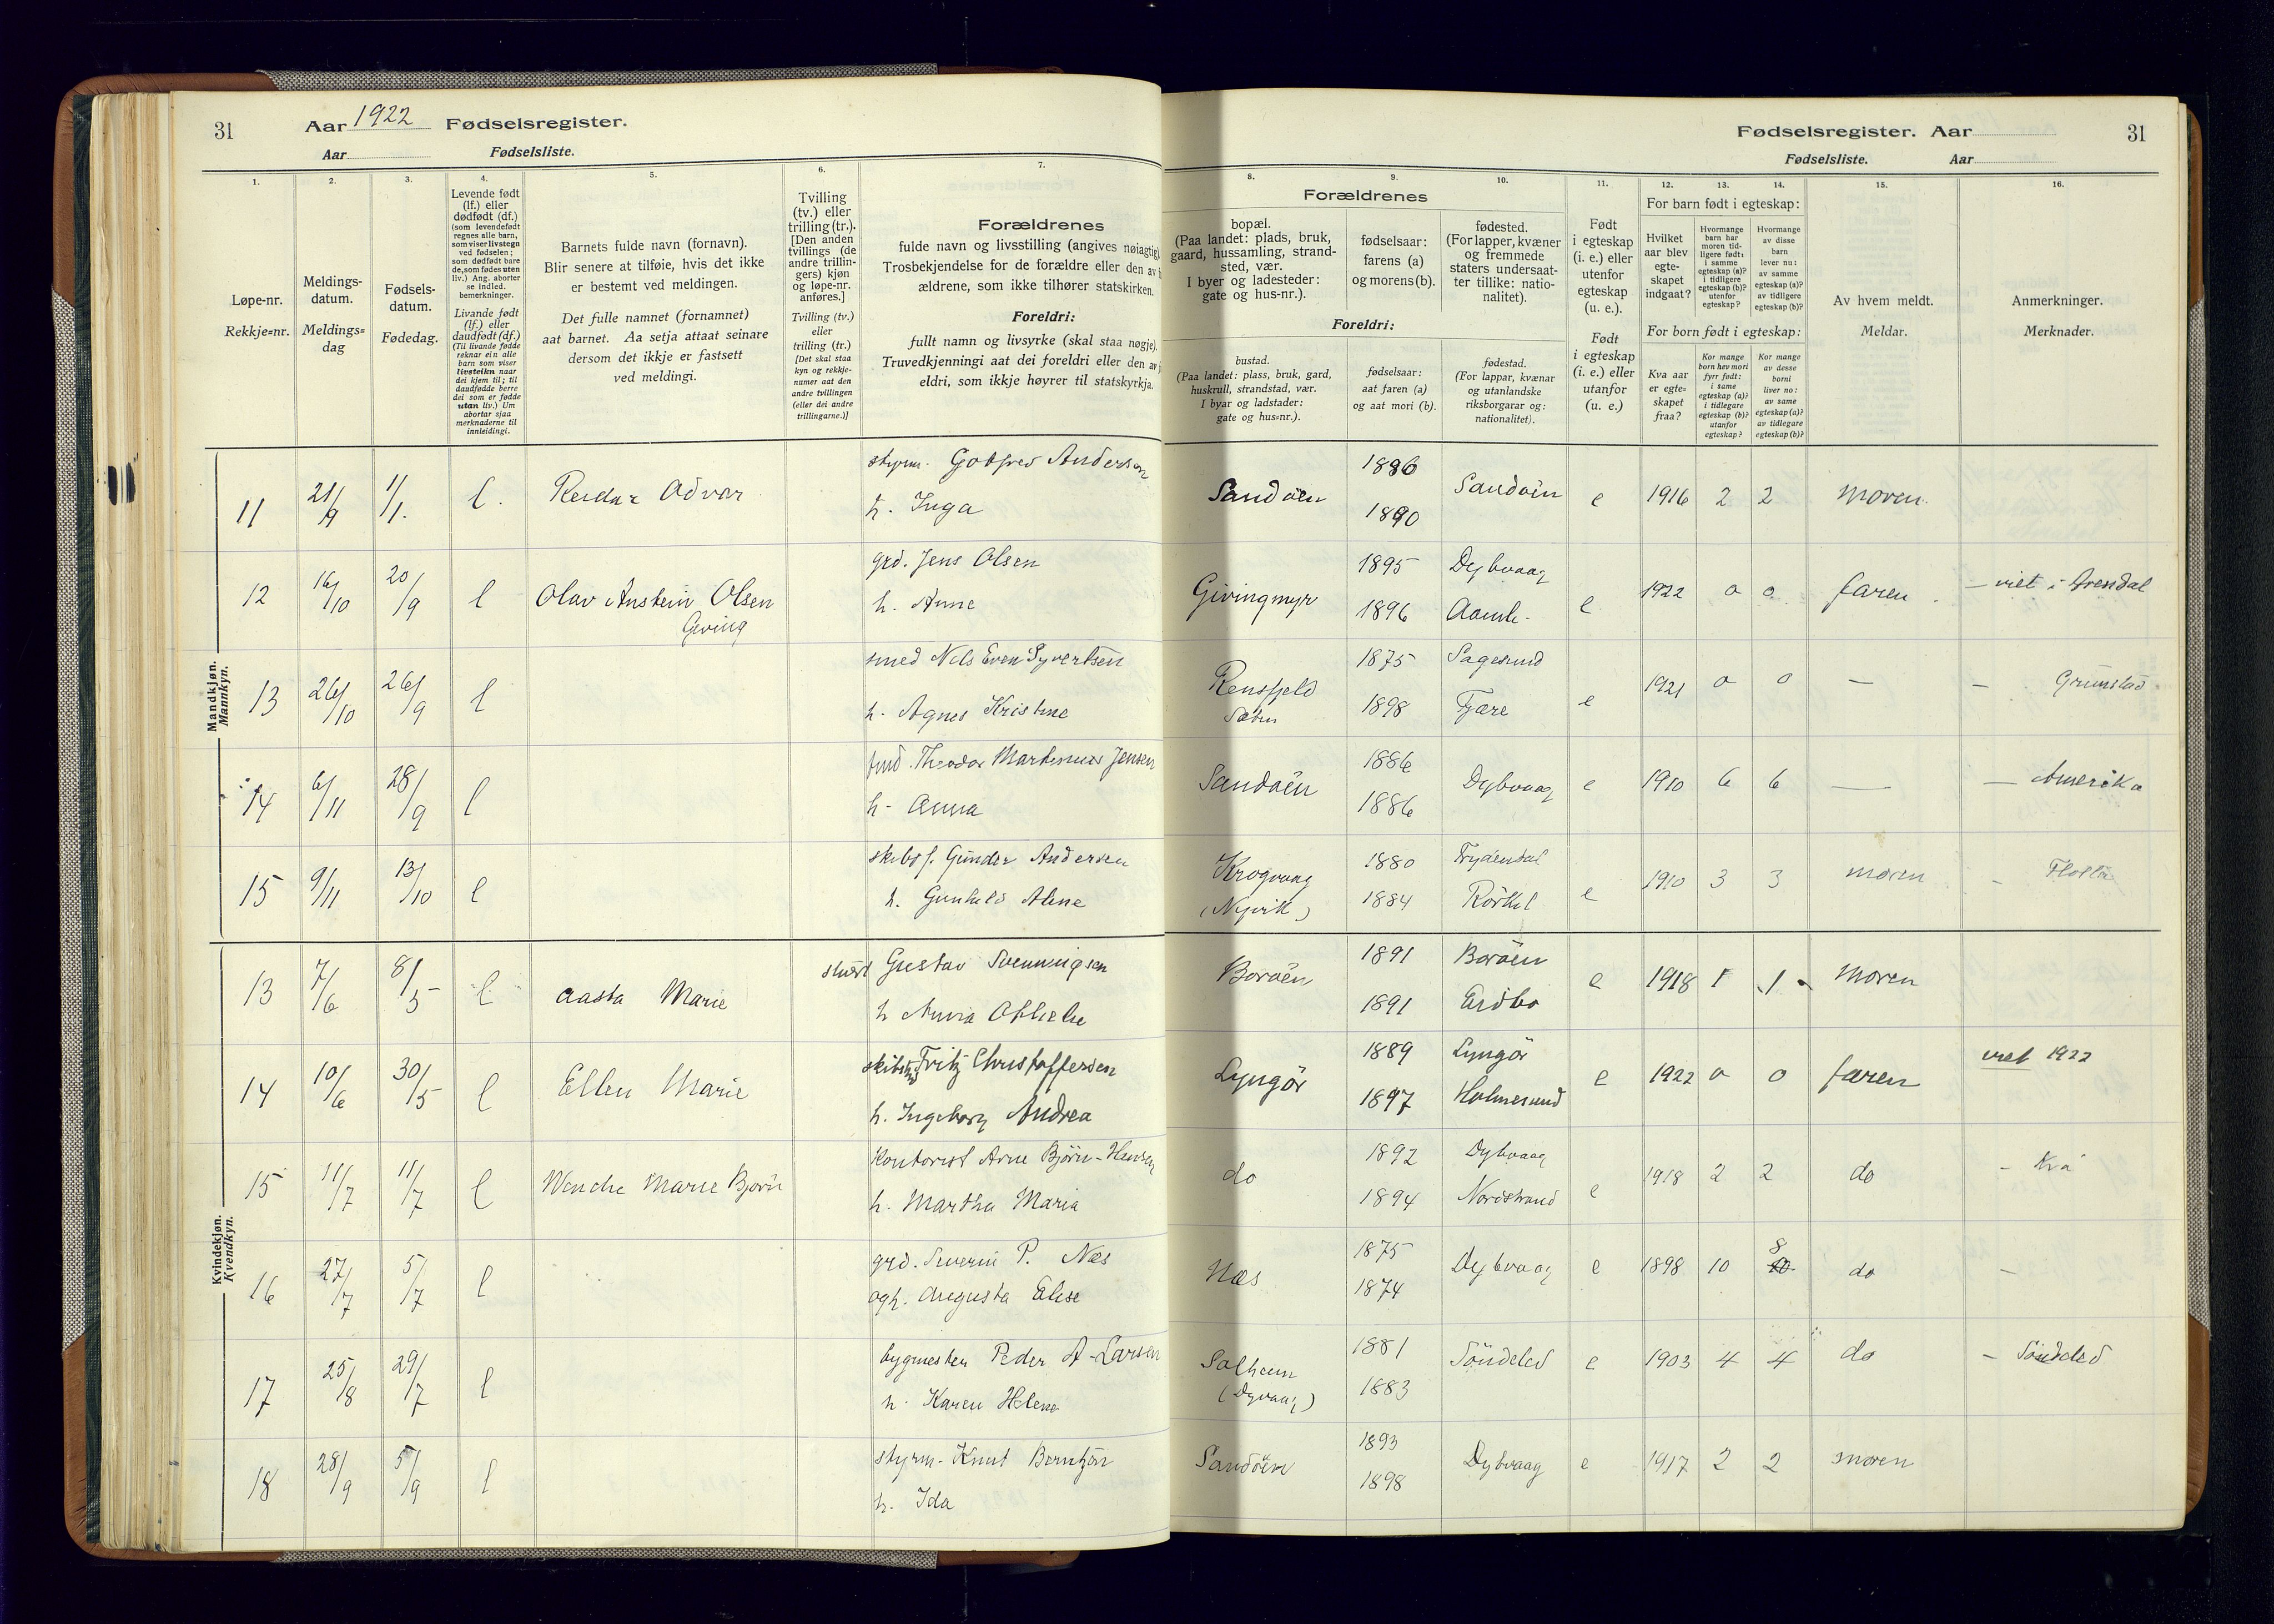 31 Aar 1922 Fødselsregister.
Aar Fødselsliste.
Fødselsregister. Aar 31
Fødselsliste. Aar
1. 2. 3. 4. 5. 6. 7. 8. 9. 10. 11. 12. 13. 14. 15. 16.
Løpe-nr.
Rekkje=nr.
Meldings-
datum.
Meldings=
dag
Fødsels-
datum.
Fødedag.
Levende født
(lf.) eller
dødfødt (df.)
(som levendefødt
regnes alle barn,
som viser livstegn
ved fødselen;
som dødfødt bare
de, som fødes uten
liv.) Ang. aborter
se indled.
bemerkninger.
Livande født
(lf.) eller
daudfødt (df.)
(Til livande fødde
reknar ein alle
barn som viser
livsteikn naar
dei kjem til; til
daudfødde berre
dei som er fødde
utan liv.) Um
abortar sjaa
merknaderne til
innleidingi.
Barnets fulde navn (fornavn).
Blir senere at tilføie, hvis det ikke
er bestemt ved meldingen.
Det fulle namnet (fornamnet)
aat barnet. Aa setja attaat seinare
dersom det ikkje er fastsett
ved meldingi.
Tvilling
(tv.) eller
trilling (tr.).
[Den anden
tvillings (de
andre trillin-
gers) kjøn
og løpe-nr.
anføres.]
Tvilling (tv.)
eller
trilling (tr.)
[Det skal staa
kyn og rekkje-
numer aat den
andre tvillingen
(eller dei andre
trillingarne.)]
Forældrenes
fulde navn og livsstilling (angives nøiagtig).
Trosbekjendelse for de forældre eller den av
ældrene, som ikke tilhører statskirken.
Foreldri:
fullt namn og livsyrke (skal staa nøgje).
Truvedkjenningi aat dei foreldri eller den av
eldri, som ikkje høyrer til statskyrkja.
Forældrenes
bopæl.
(Paa landet: plads, bruk,
gaard, hussamling, strand-
sted, vær.
I byer og ladesteder:
gate og hus-nr.).
fødselsaar:
farens (a)
og morens (b).
fødested.
(For lapper, kvæner
og fremmede
staters undersaat-
ter tillike: natio-
nalitet).
Foreldri:
bustad.
(Paa landet: plass, bruk, gard,
huskrull, strandstad, vær.
I byar og ladstader:
gate og hus=nr.).
fødselsaar:
aat faren (a)
og aat mori (b).
fødestad.
(For lappar, kvænar
og utanlandske
riksborgarar og:
nationalitet).
Født
i egteskap
(i. e.) eller
utenfor
egteskap
(u. e.).
Født
i egteskap
(i. e.) eller
utanfor
(u. e.)
For barn født i egteskap:
Hvilket
aar blev
egte-
skapet
indgaat?
Hvormange
barn har
moren tid-
ligere født:
i samme
egteskap (a)?
i tidligere
egteskap (b)?
utenfor
egteskap?
Hvormange
av disse
barn
lever nu:
av samme
egteskap (a)?
av tidligere
egteskap (b)?
For born født i egteskap:
Kva aar
er egte=
skapet
fraa?
Kor mange
born hev mori
fyrr født:
i same
egteskap (a)?
i tidlegare
egteskap (b)?
utanfor
egteskap?
Kor mange
av desse
borni
liver no:
av same
egteskap (a)?
av tidlegare
egteskap (b)?
Av hvem meldt.
Meldar.
Anmerkninger.
Merknader.
Mandkjøn.
Mannkyn.
styrm. Gotfred Andersen 1886
11 21/9 1/1. l. Reidar Advar Sandøen Sandøen e 1916 2 2 moren
h. Inga 1890
grd. Jens Olsen 1895 Dybvaag
12 16/10 20/9 l Olav Anstein Olsen Givingmyr e 1922 0 0 faren – viet i Arendal
Geving h. Anne 1896 Aamli-
smed Nils Even Syvertsen 1875 Sagesund
13 26/10 26/9 l Rensfjeld e 1921 0 0 — – Grimstad
h. Agnes Kristine 1898 Fjære
fmd. Theodor Martinius Jensen 1886
14 6/11 28/9 l Sandøen Dybvaag e 1910 6 6 — – Amerika
h. Anna 1886
skibsf. Gunder Andersen 1880
15 9/11 13/10 l Krogvaag e 1910 3 3 moren –
h. Gunhild Aline (Nyvik) 1884
Kvindekjøn.
Kvendkyn.
Gustav Svenningsen 1891 Borøen
13 7/6 8/5 l Aasta Marie Borøen e 1918 1 1 moren
1891 Eidbo
Fritz Christoffersen 1889 Lyngør viet 1922
14 10/6 30/5 l Ellen Marie Lyngør e 1922 0 0 faren
h. Ingeborg Andrea 1897 Holmesund
Kontorist Arne Bjørn-Hansen 1892 Dybvaag
15 11/7 11/7 l Wenche Marie Bjørn do e 1918 2 2 do – Kra
h. Martha Maria 1894 Nordstrand
grd. Severin P. Næs 1875 8
16 27/7 5/7 l Næs Dybvaag e 1898 10 do –
og h. Augusta Elise 1874
bygmester Peder A-Larsen 1881
17 25/8 29/7 l Solheim Søndeled e 1903 4 4 do – Søndeled
h. Karen Helene (Dyvaag) 1883
styrm. Knut Berntzøn 1893
18 28/9 5/9 l Sandøen Dybvaag e 1917 2 2 moren
h. Ida 1898